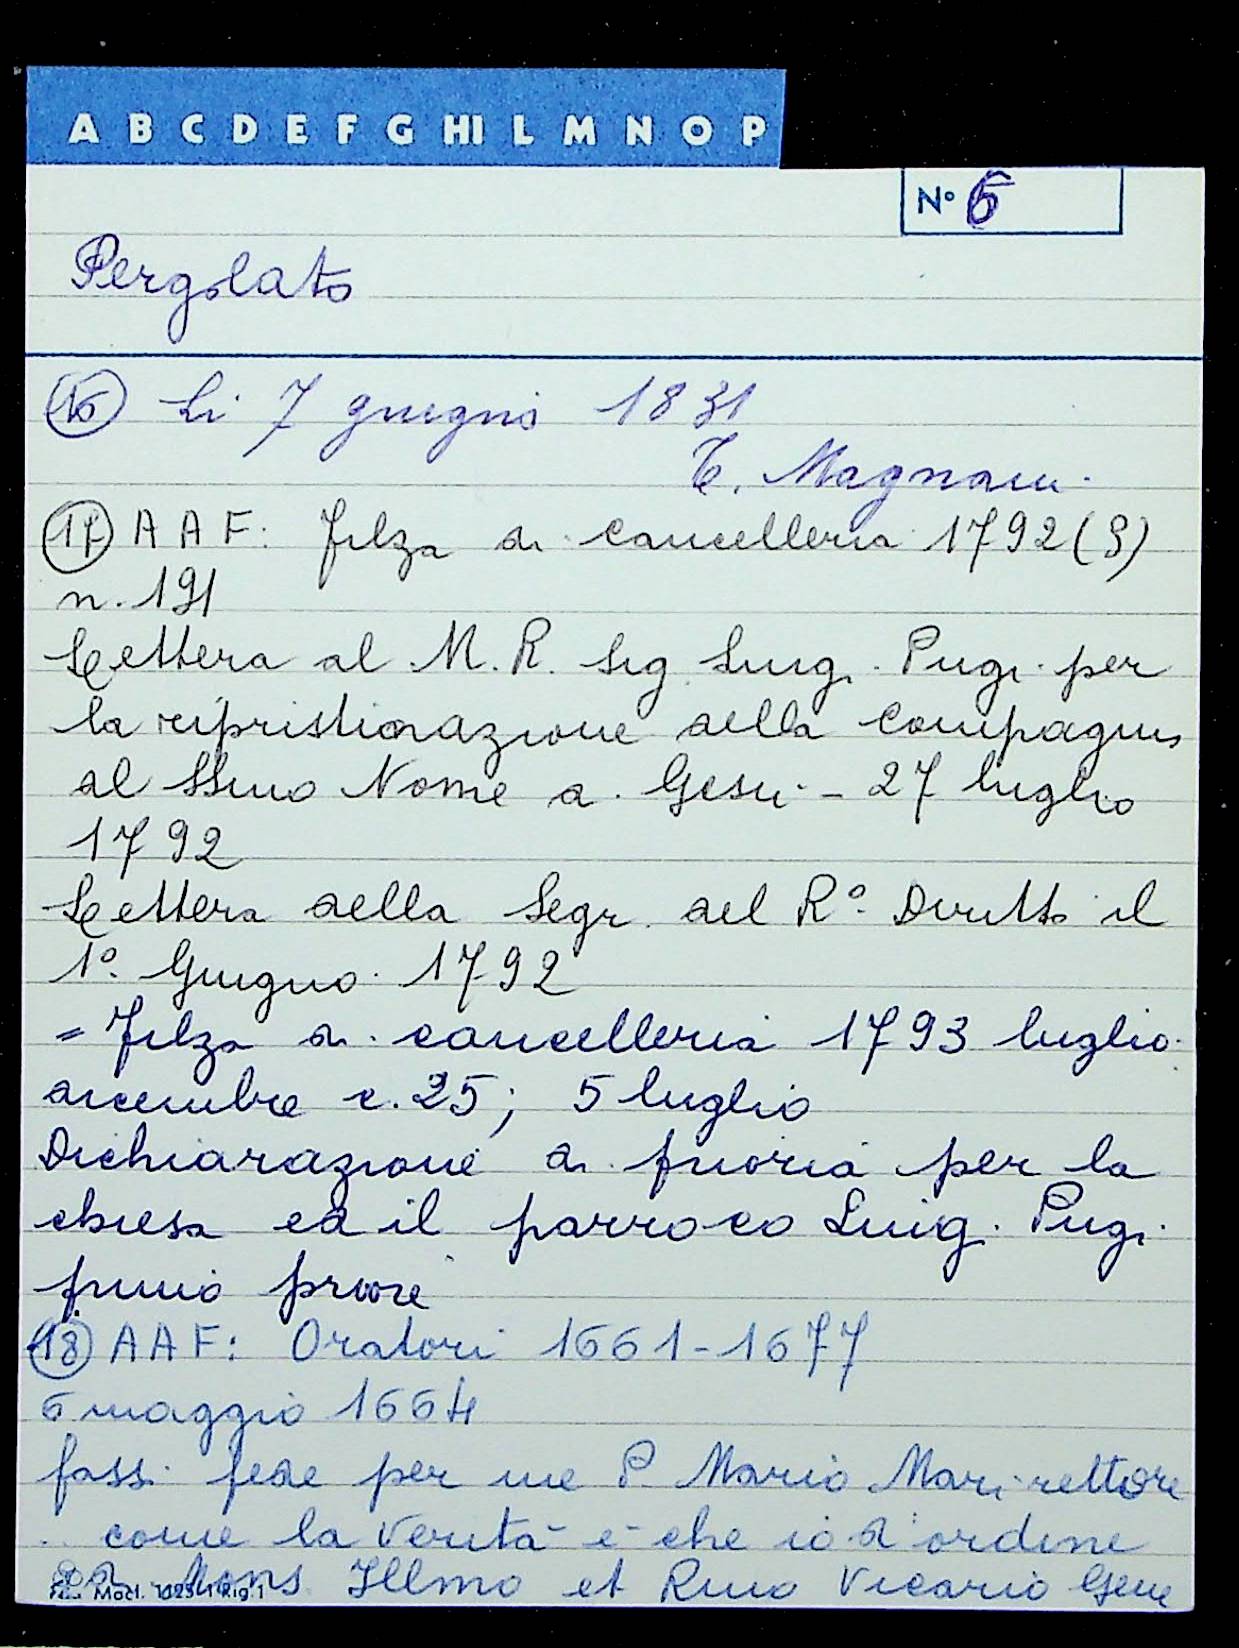 A B C D E F G HI L M N O P
N° 6
Pergolato
16 Li 7 giugno 1831
T. Magnani
17 A A F: Filza di cancelleria 1792 (S)
n. 191
Lettera al M. R. Sig Luigi Pugi per
la ripristinazione della compagnia
del SSmo Nome di Gesu - 27 luglio
1792
Lettera della Segr. del R°. Diritto il
1° Giugno 1792
= Filza di cancelleria 1793 luglio
dicembre c. 25; 5 luglio
Dichiarazione di prioria per la
chiesa ed il parroco Luigi Pugi
primo priore
18 A A F: Oratori 1661-1677
6 maggio 1664
fassi fede per me P. Mario Mari rettore
.. come la verità è che io d'ordine
di Mons Illmo et Rmo Vicario Gene
Mod. 1025